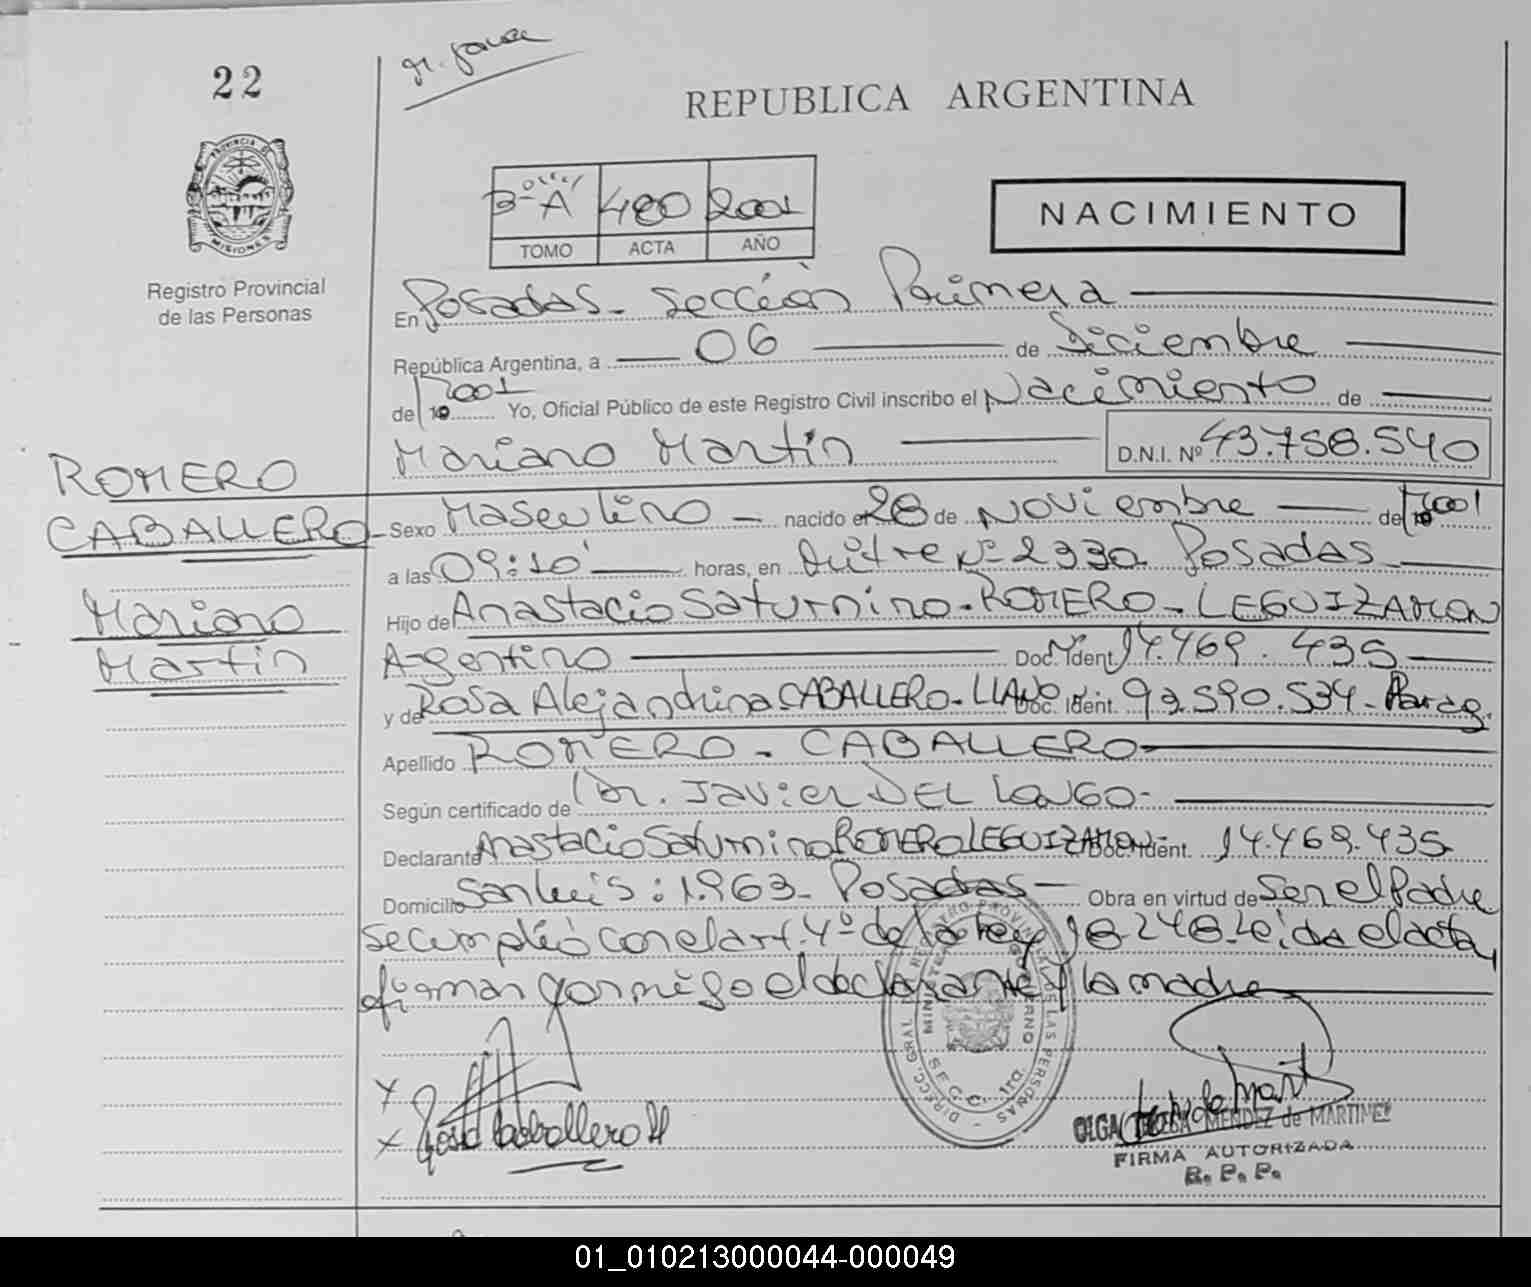 22
REPUBLICA ARGENTINA
PROVINCIA DE
MISIONES
Registro Provincial
de las Personas
3-A 480 2001
TOMO ACTA AÑO
NACIMIENTO
En Posadas - Sección Primera
República Argentina, a 06 de Diciembre
de 2001 Yo, Oficial Público de este Registro Civil inscribo el Nacimiento de
Mariano Martín D.N.I. Nº 43.758.540
ROMERO
CABALLERO
Mariano
Martín
Sexo Masculino - nacido el 28 de Noviembre de 2001
a las 09:10' horas, en Mitre Nº 2930 Posadas
Hijo de Anastacio Saturnino - ROMERO - LEGUIZAMON
Argentino Doc. Ident. 14.469.435
y de Rosa Alejandrina CABALLERO - LLANO Doc. Ident. 92.590.534 - Parag.
Apellido ROMERO - CABALLERO
Según certificado de Dr. Javier DEL LONGO -
Declarante Anastacio Saturnino ROMERO LEGUIZAMON Doc. Ident. 14.469.435
Domicilio San Luis: 1963 - Posadas - Obra en virtud de Ser el Padre
se cumplió con el art. 4º de la ley 18.248. Leída el acta,
firman conmigo el declarante y la madre
DIRECC. GRAL. REGISTRO PROVINCIAL DE LAS PERSONAS
MINISTERIO GOBIERNO
SECC. 1ra.
x
x Rosa Caballero
OLGA MENDEZ de MARTINEZ
FIRMA AUTORIZADA
R. P. P.
01_010213000044-000049